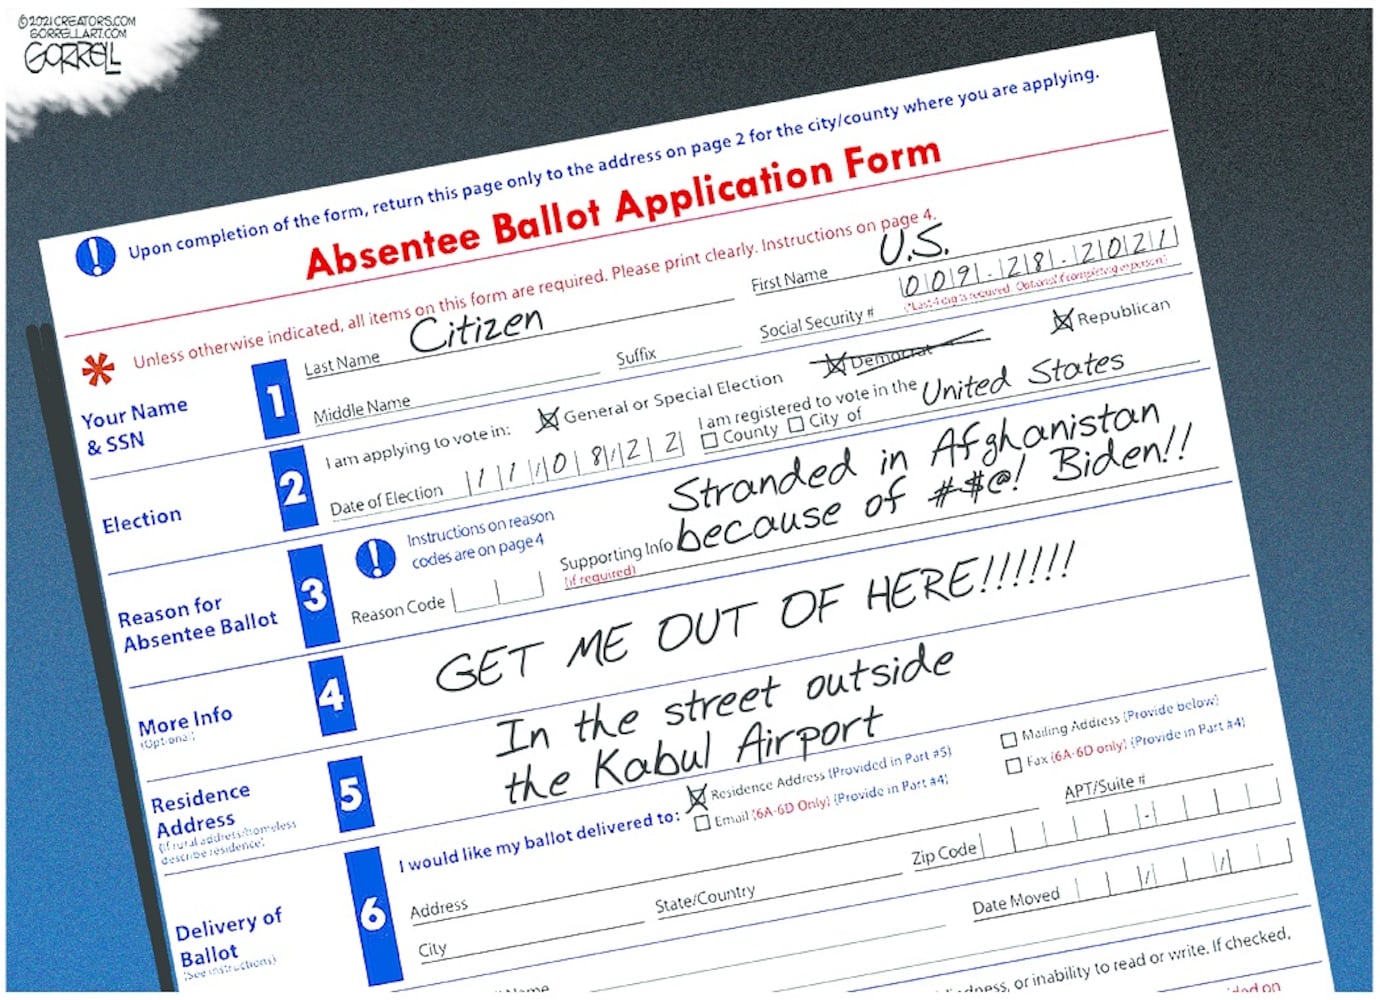 ©2021 CREATORS.COM
GORRELLART.COM
GORRELL
Upon completion of the form, return this page only to the address on page 2 for the city/county where you are applying.
Absentee Ballot Application Form
* Unless otherwise indicated, all items on this form are required. Please print clearly. Instructions on page 4.
Your Name & SSN
1
Last Name Citizen
First Name U.S.
Middle Name
Suffix
Social Security # 009-28-2021
*Last 4 digits required. Optional if completing in person.
Election
2
I am applying to vote in: General or Special Election
Democrat
Republican
Date of Election 11/08/22
I am registered to vote in the
County City of United States
Reason for
Absentee Ballot
3
Instructions on reason
codes are on page 4
Reason Code
Supporting Info
(if required)
Stranded in Afghanistan
because of #$@! Biden!!
More Info
(Optional)
4
GET ME OUT OF HERE!!!!!!
Residence
Address
(If rural address/homeless
describe residence)
5
In the street outside
the Kabul Airport
Delivery of
Ballot
(See instructions)
6
I would like my ballot delivered to:
Residence Address (Provided in Part #5)
Mailing Address (Provide below)
Email (6A-6D Only) (Provide in Part #4)
Fax (6A-6D only) (Provide in Part #4)
Address
APT/Suite #
City
State/Country
Zip Code
Date Moved
Name
or inability to read or write. If checked,